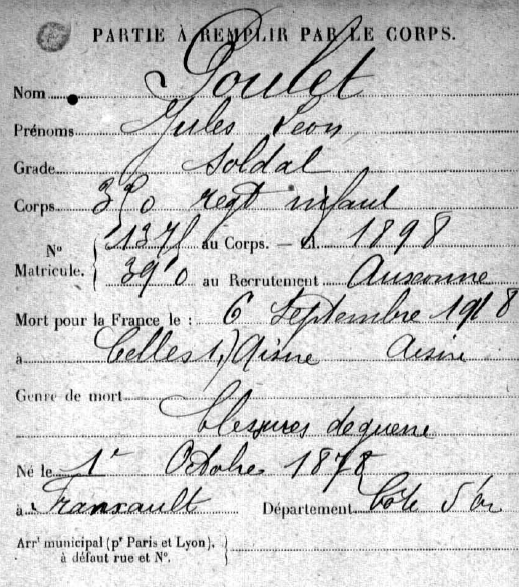 PARTIE À REMPLIR PAR LE CORPS.
Nom Poulet
Prénoms Jules Léon
Grade soldat
Corps 330 regt infant
N° Matricule. 11378 au Corps. — Cl. 1898
390 au Recrutement Auxonne
Mort pour la France le : 6 Septembre 1918
à Celles s/ Aisne Aisne
Genre de mort
blessures de guerre
Né le 1r Octobre 1878
à Franxault Département Côte d'or
Arrt municipal (pr Paris et Lyon),
à défaut rue et N°.